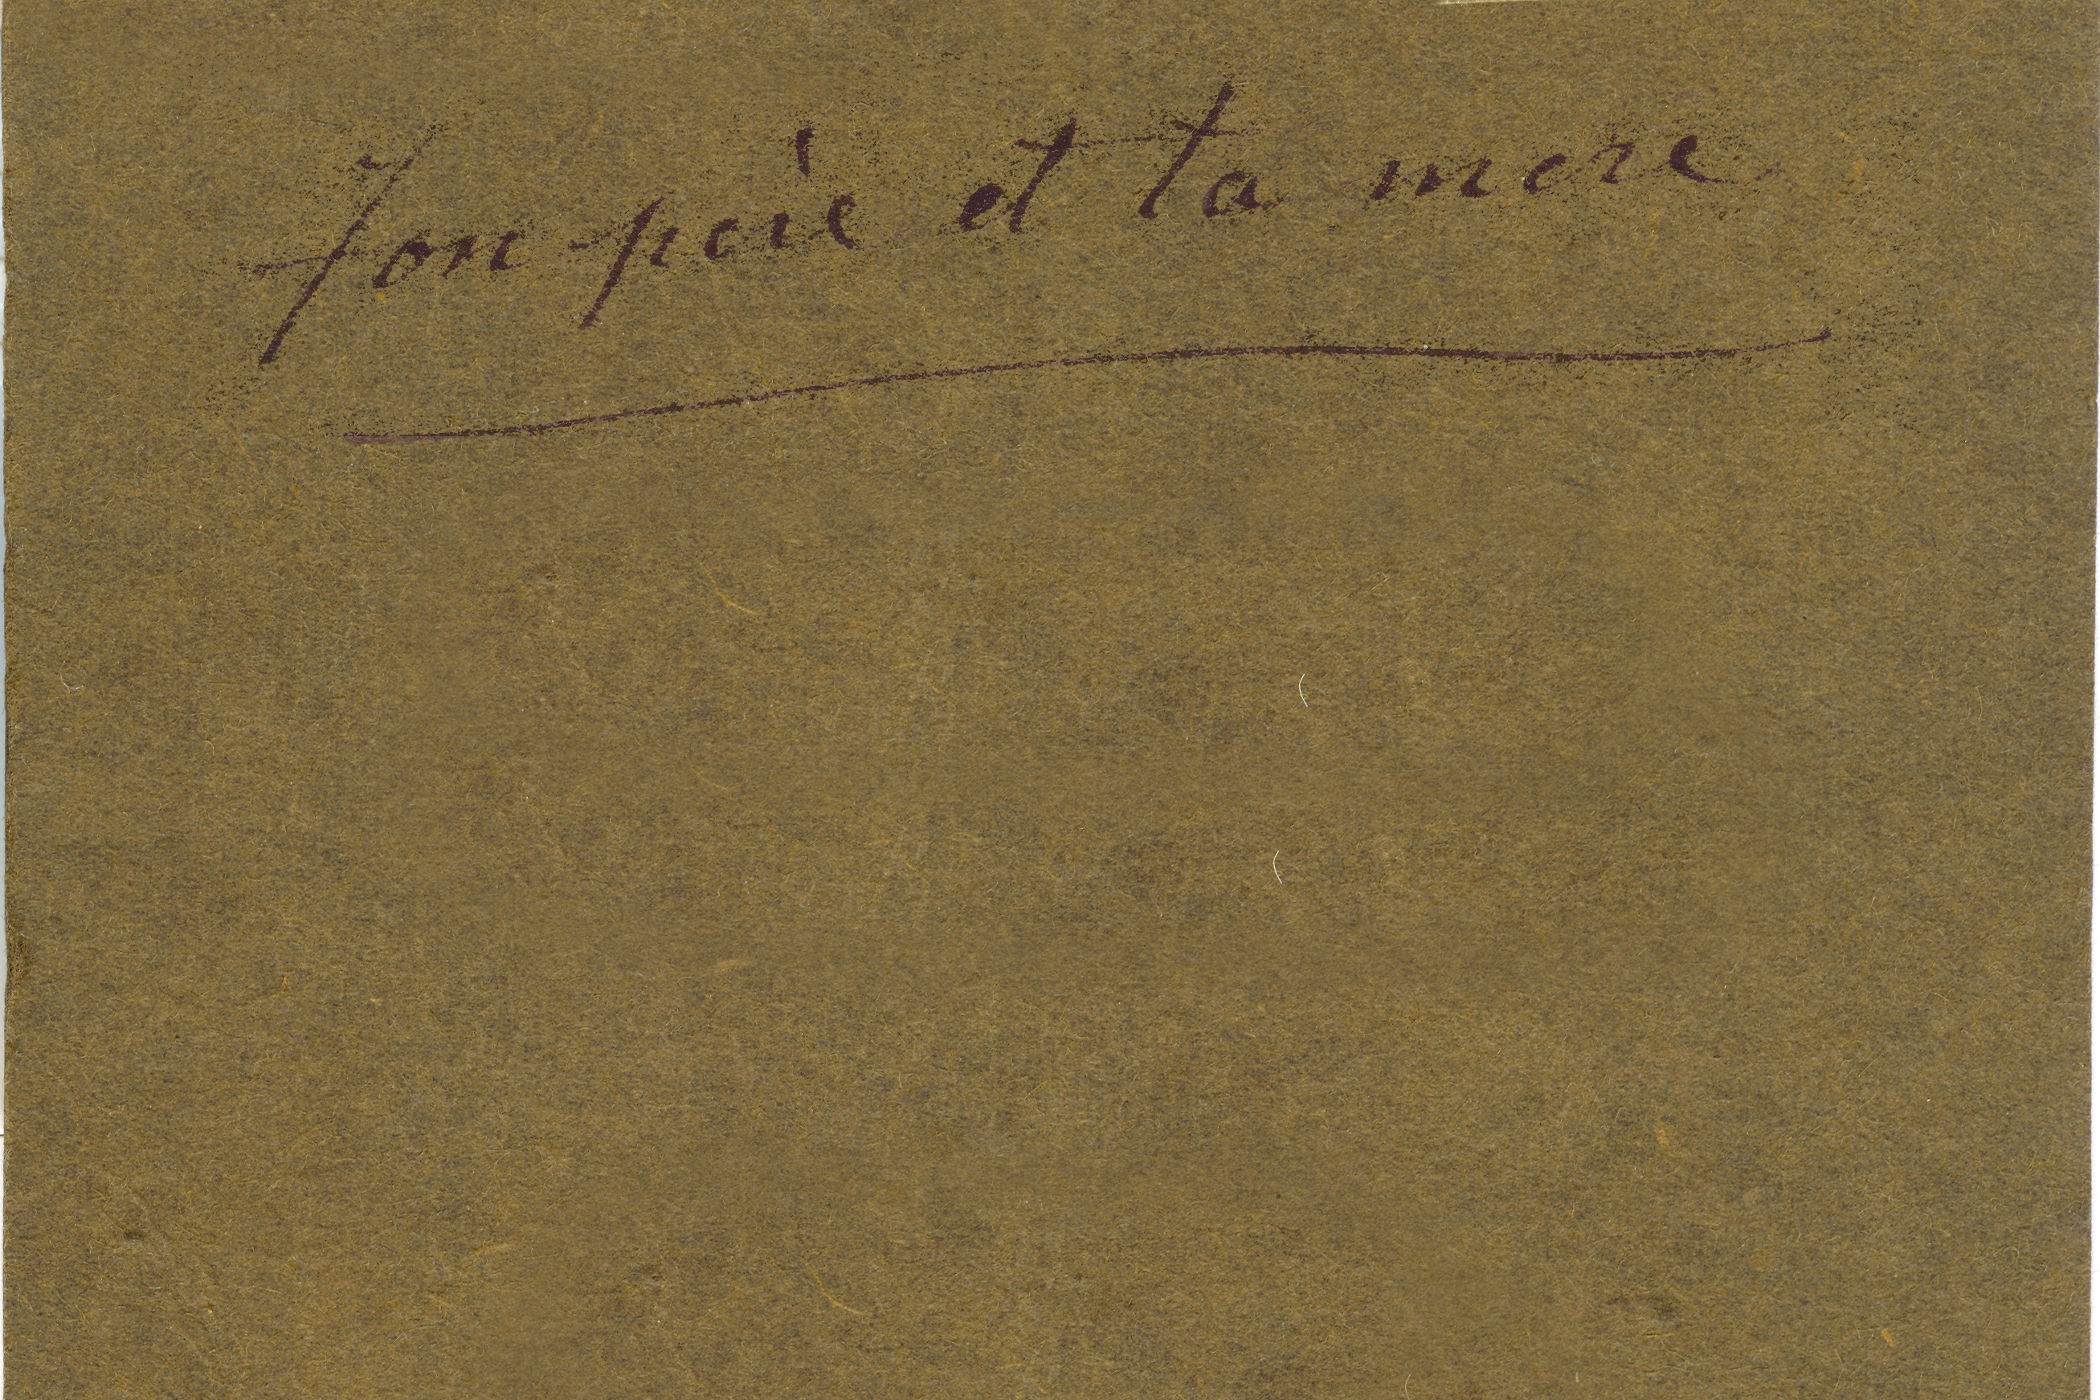 Ton père et ta mere